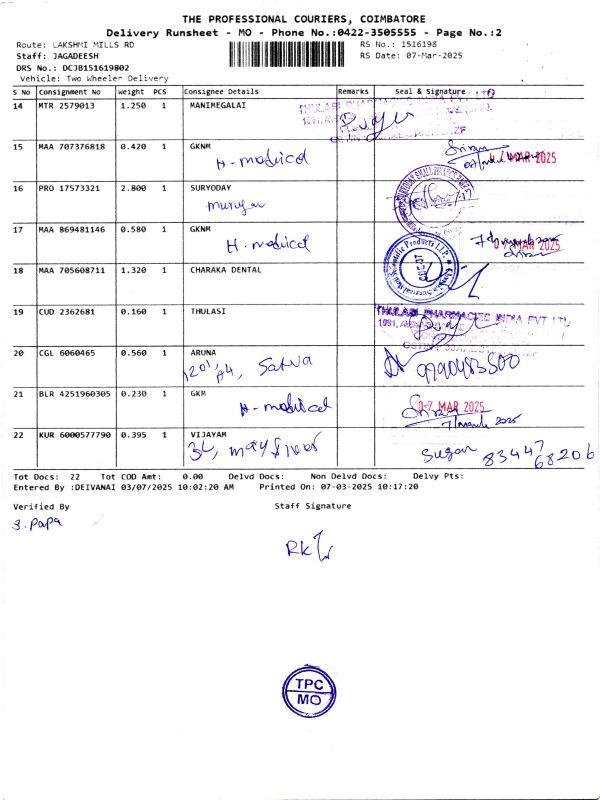 THE PROFESSIONAL COURIERS, COIMBATORE
Delivery Runsheet - MO - Phone No.:0422-3505555 - Page No.:2
Route: LAKSHMI MILLS RD RS No.: 1516198
Staff: JAGADEESH RS Date: 07-Mar-2025
DRS No.: DCJB151619802
Vehicle: Two Wheeler Delivery
S No Consignment No Weight PCS Consignee Details Remarks Seal & Signature
14 MTR 2579013 1.250 1 MANIMEGALAI
15 MAA 707376818 0.420 1 GKNM
H-medical MAR 2025
16 PRO 17573321 2.800 1 SURYODAY
murugan
17 MAA 869481146 0.580 1 GKNM
H-medical 07 MAR 2025
18 MAA 705608711 1.320 1 CHARAKA DENTAL
19 CUD 2362681 0.160 1 THULASI THULASI PHARMACIES INDIA PVT LTD
20 CGL 6060465 0.560 1 ARUNA
1201, A4, Satva
21 BLR 4251960305 0.230 1 GKM
H-medical 07 MAR 2025
22 KUR 6000577790 0.395 1 VIJAYAM
3L, mayflower Sugan 83447 68206
Tot Docs: 22 Tot COD Amt: 0.00 Delvd Docs: Non Delvd Docs: Delvy Pts:
Entered By :DEIVANAI 03/07/2025 10:02:20 AM Printed On: 07-03-2025 10:17:20
Verified By Staff Signature
S. Papa
TPC
MO